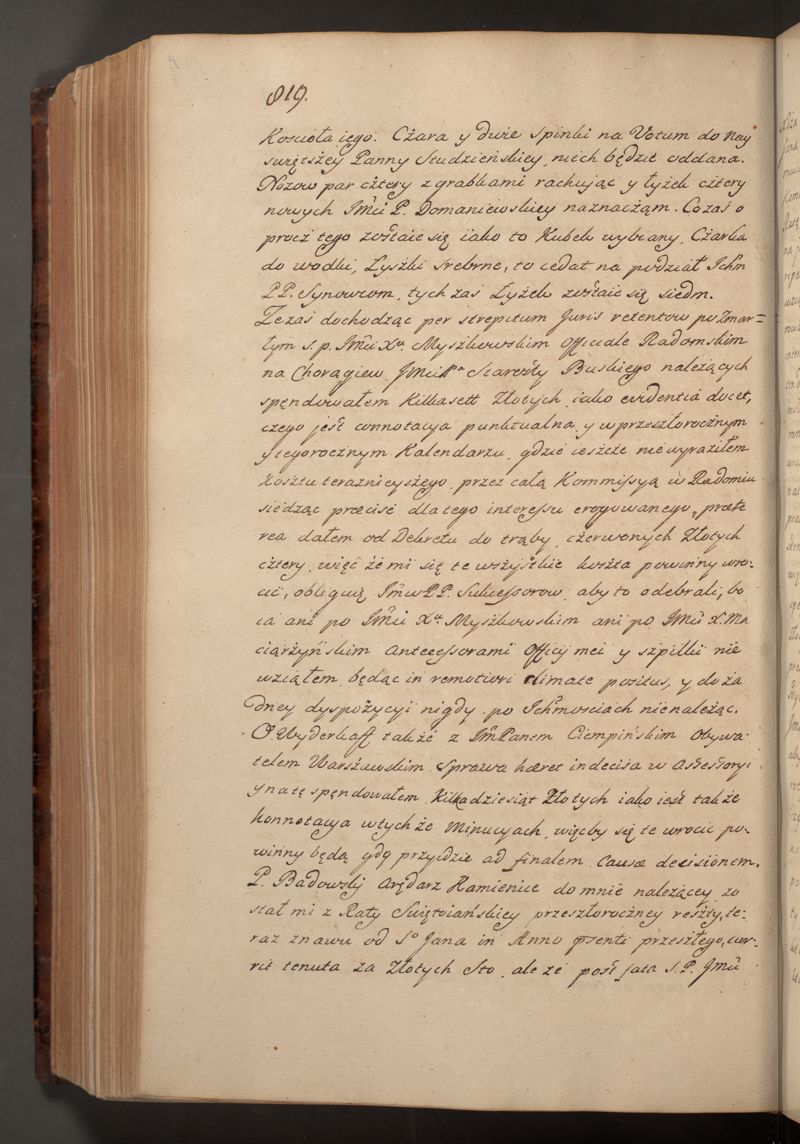 819.
Kościoła iego. Czara y dwie Spinki na Votum do Nay
świętszey Panny Studzieńskiey niech będzie oddana.
Nożow par cztery z grabkami rachuiąc y łyżek cztery
nowych Jmći P. Domaniewskiey naznaczam. Co zaś o
procz tego zostaie się iako to Kubek wybrany, Czarka
do wodki, Łyszki Srebrne, to cedat na podział Ichm
PP. Synowcom, tych zaś Łyżek zostaie się siedm.
Że zaś dochodząc per strepitum Juris retentow po Zmar=
łym s. p. Jmći Xdu Myszkowskim Officiale Radomskim
na Chorągiew Jmći Pa Starosty Buskiego należących
spęndowałem Kilkasett Złotych, iako evidentia docet,
czego jest connotacya punktualna y w przeszłorocznym
y tegorocznym Kalendarzu, gdzie ieszcze nie wyraziłem
kosztu teraznieyszego, przez całą Kommissyą w Radomiu
siedząc precise dla tego interessu erogowanego, præte
rea dałem od Dekretu do trąby, czerwonych Złotych
cztery, więc że mi się te wszystkie koszta powinny wro=
cić, obliguię JmwPP. Sukcessorow, aby to odebrali, bo
ia ani po Jmći Xdu Myszkowskim ani po Jmći X. Ma
ciążyńskim Antecessorami Officij mei y szpilki nie
wziąłem będąc in remotiori climate positus, y do ża
dney dyspozycyi nigdy po Ichmościach nie należąc.
O Wyderkaff także z JmPanem Ciempińskim Obywa=
telem Warszawskim Sprawa hæret indecisa w Assessoryi
y na tę spęndowałem Kilkadziesiąt Złotych iako iest także
konnotacya w tychże Minucyach, więcby się te wrocić po=
winny będą gdy przyidzie ad finalem causæ decisionem.
P. Badowski Arędarz Kamienice do mnie należącey zo
stał mi z Raty Świętoiańskiey przeszłoroczney reszty, te=
raz znowu od So Jana in Anno psenti przeszłego, cur=
rit tenuta za Złotych Sto, ale że post fata S. P. Jmći